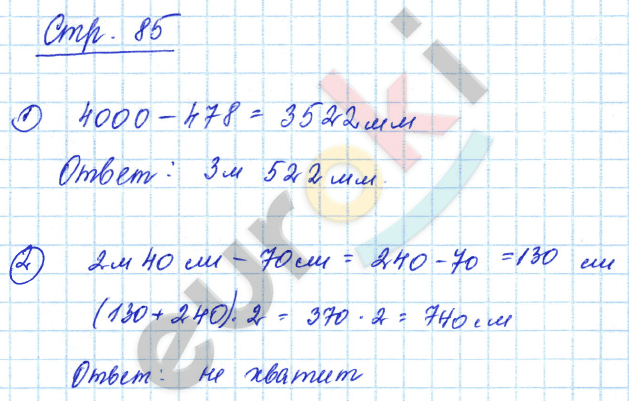 Стр. 85
1) 4000 - 478 = 3522 мм
Ответ: 3м 522 мм.
2) 2м 40 см - 70 см = 240 - 70 = 130 см
(130 + 240) · 2 = 370 · 2 = 740 см
Ответ: не хватит
euroki